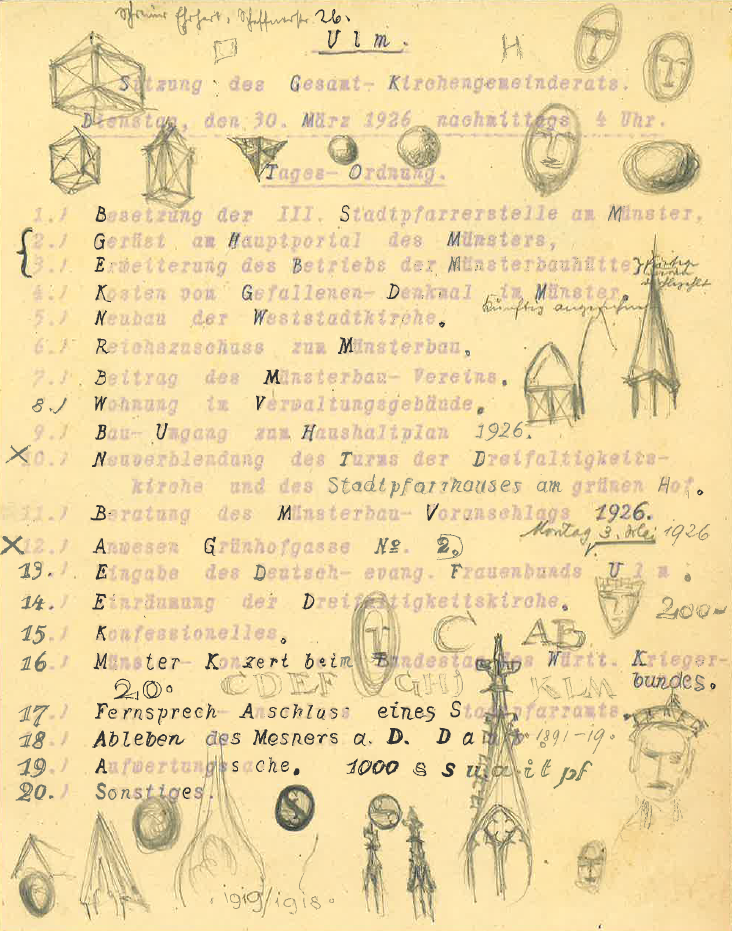 26.
Ulm.
H
Sitzung des Gesamt-Kirchengemeinderats.
Dienstag, den 30. März 1926 nachmittags 4 Uhr.
Tages-Ordnung.
1.) Besetzung der III. Stadtpfarrerstelle am Münster,
2.) Gerüst am Hauptportal des Münsters,
3.) Erweiterung des Betriebs der Münsterbauhütte,
4.) Kosten von Gefallenen-Denkmal im Münster,
künftig
5.) Neubau der Weststadtkirche.
6.) Reichszuschuss zum Münsterbau,
7.) Beitrag des Münsterbau-Vereins.
8.) Wohnung im Verwaltungsgebäude.
9.) Bau-Umgang zum Haushaltplan 1926.
10.) Neuverblendung des Turms der Dreifaltigkeits-
kirche und des Stadtpfarrhauses am grünen Hof.
11.) Beratung des Münsterbau-Voranschlags 1926.
Montag 3. Mai 1926
12.) Anwesen Grünhofgasse No. 2,
13.) Eingabe des Deutsch-evang. Frauenbunds Ulm.
14.) Einräumung der Dreifaltigkeitskirche.
200-
15.) Konfessionelles.
C AB
16.) Münster-Konzert beim Bundestag des Württ. Krieger-
bundes.
20. CDEF GHJ KLM
17.) Fernsprech-Anschluss eines Stadtpfarramts.
18.) Ableben des Mesners a. D. 1891-19
19.) Aufwertungssache. 1000 s s u a i t pf
20.) Sonstiges.
S
S
1919/1918.